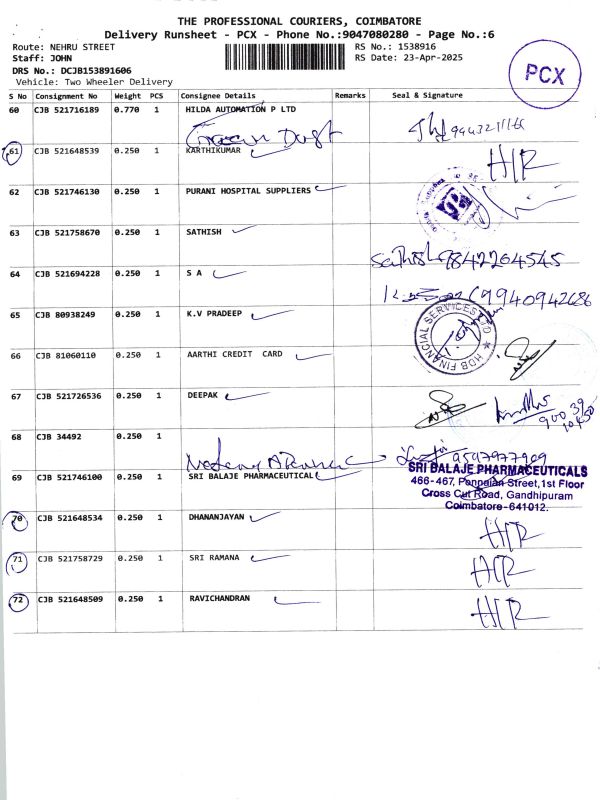 THE PROFESSIONAL COURIERS, COIMBATORE
Delivery Runsheet - PCX - Phone No.:9047080280 - Page No.:6
Route: NEHRU STREET
RS No.: 1538916
Staff: JOHN
RS Date: 23-Apr-2025
DRS No.: DCJB153891606
Vehicle: Two Wheeler Delivery
PCX
S No Consignment No Weight PCS Consignee Details Remarks Seal & Signature
60 CJB 521716189 0.770 1 HILDA AUTOMATION P LTD
61 CJB 521648539 0.250 1 KARTHIKUMAR H/R
62 CJB 521746130 0.250 1 PURANI HOSPITAL SUPPLIERS
63 CJB 521758670 0.250 1 SATHISH
Sathish 9842264545
64 CJB 521694228 0.250 1 S A
9940942686
65 CJB 80938249 0.250 1 K.V PRADEEP
HDB FINANCIAL SERVICES LTD
66 CJB 81060110 0.250 1 AARTHI CREDIT CARD
67 CJB 521726536 0.250 1 DEEPAK
68 CJB 34492 0.250 1
69 CJB 521746100 0.250 1 SRI BALAJE PHARMACEUTICAL
SRI BALAJE PHARMACEUTICALS
466-467, Ponnaian Street,1st Floor
Cross Cut Road, Gandhipuram
Coimbatore-641012.
70 CJB 521648534 0.250 1 DHANANJAYAN H/R
71 CJB 521758729 0.250 1 SRI RAMANA H/R
72 CJB 521648509 0.250 1 RAVICHANDRAN H/R